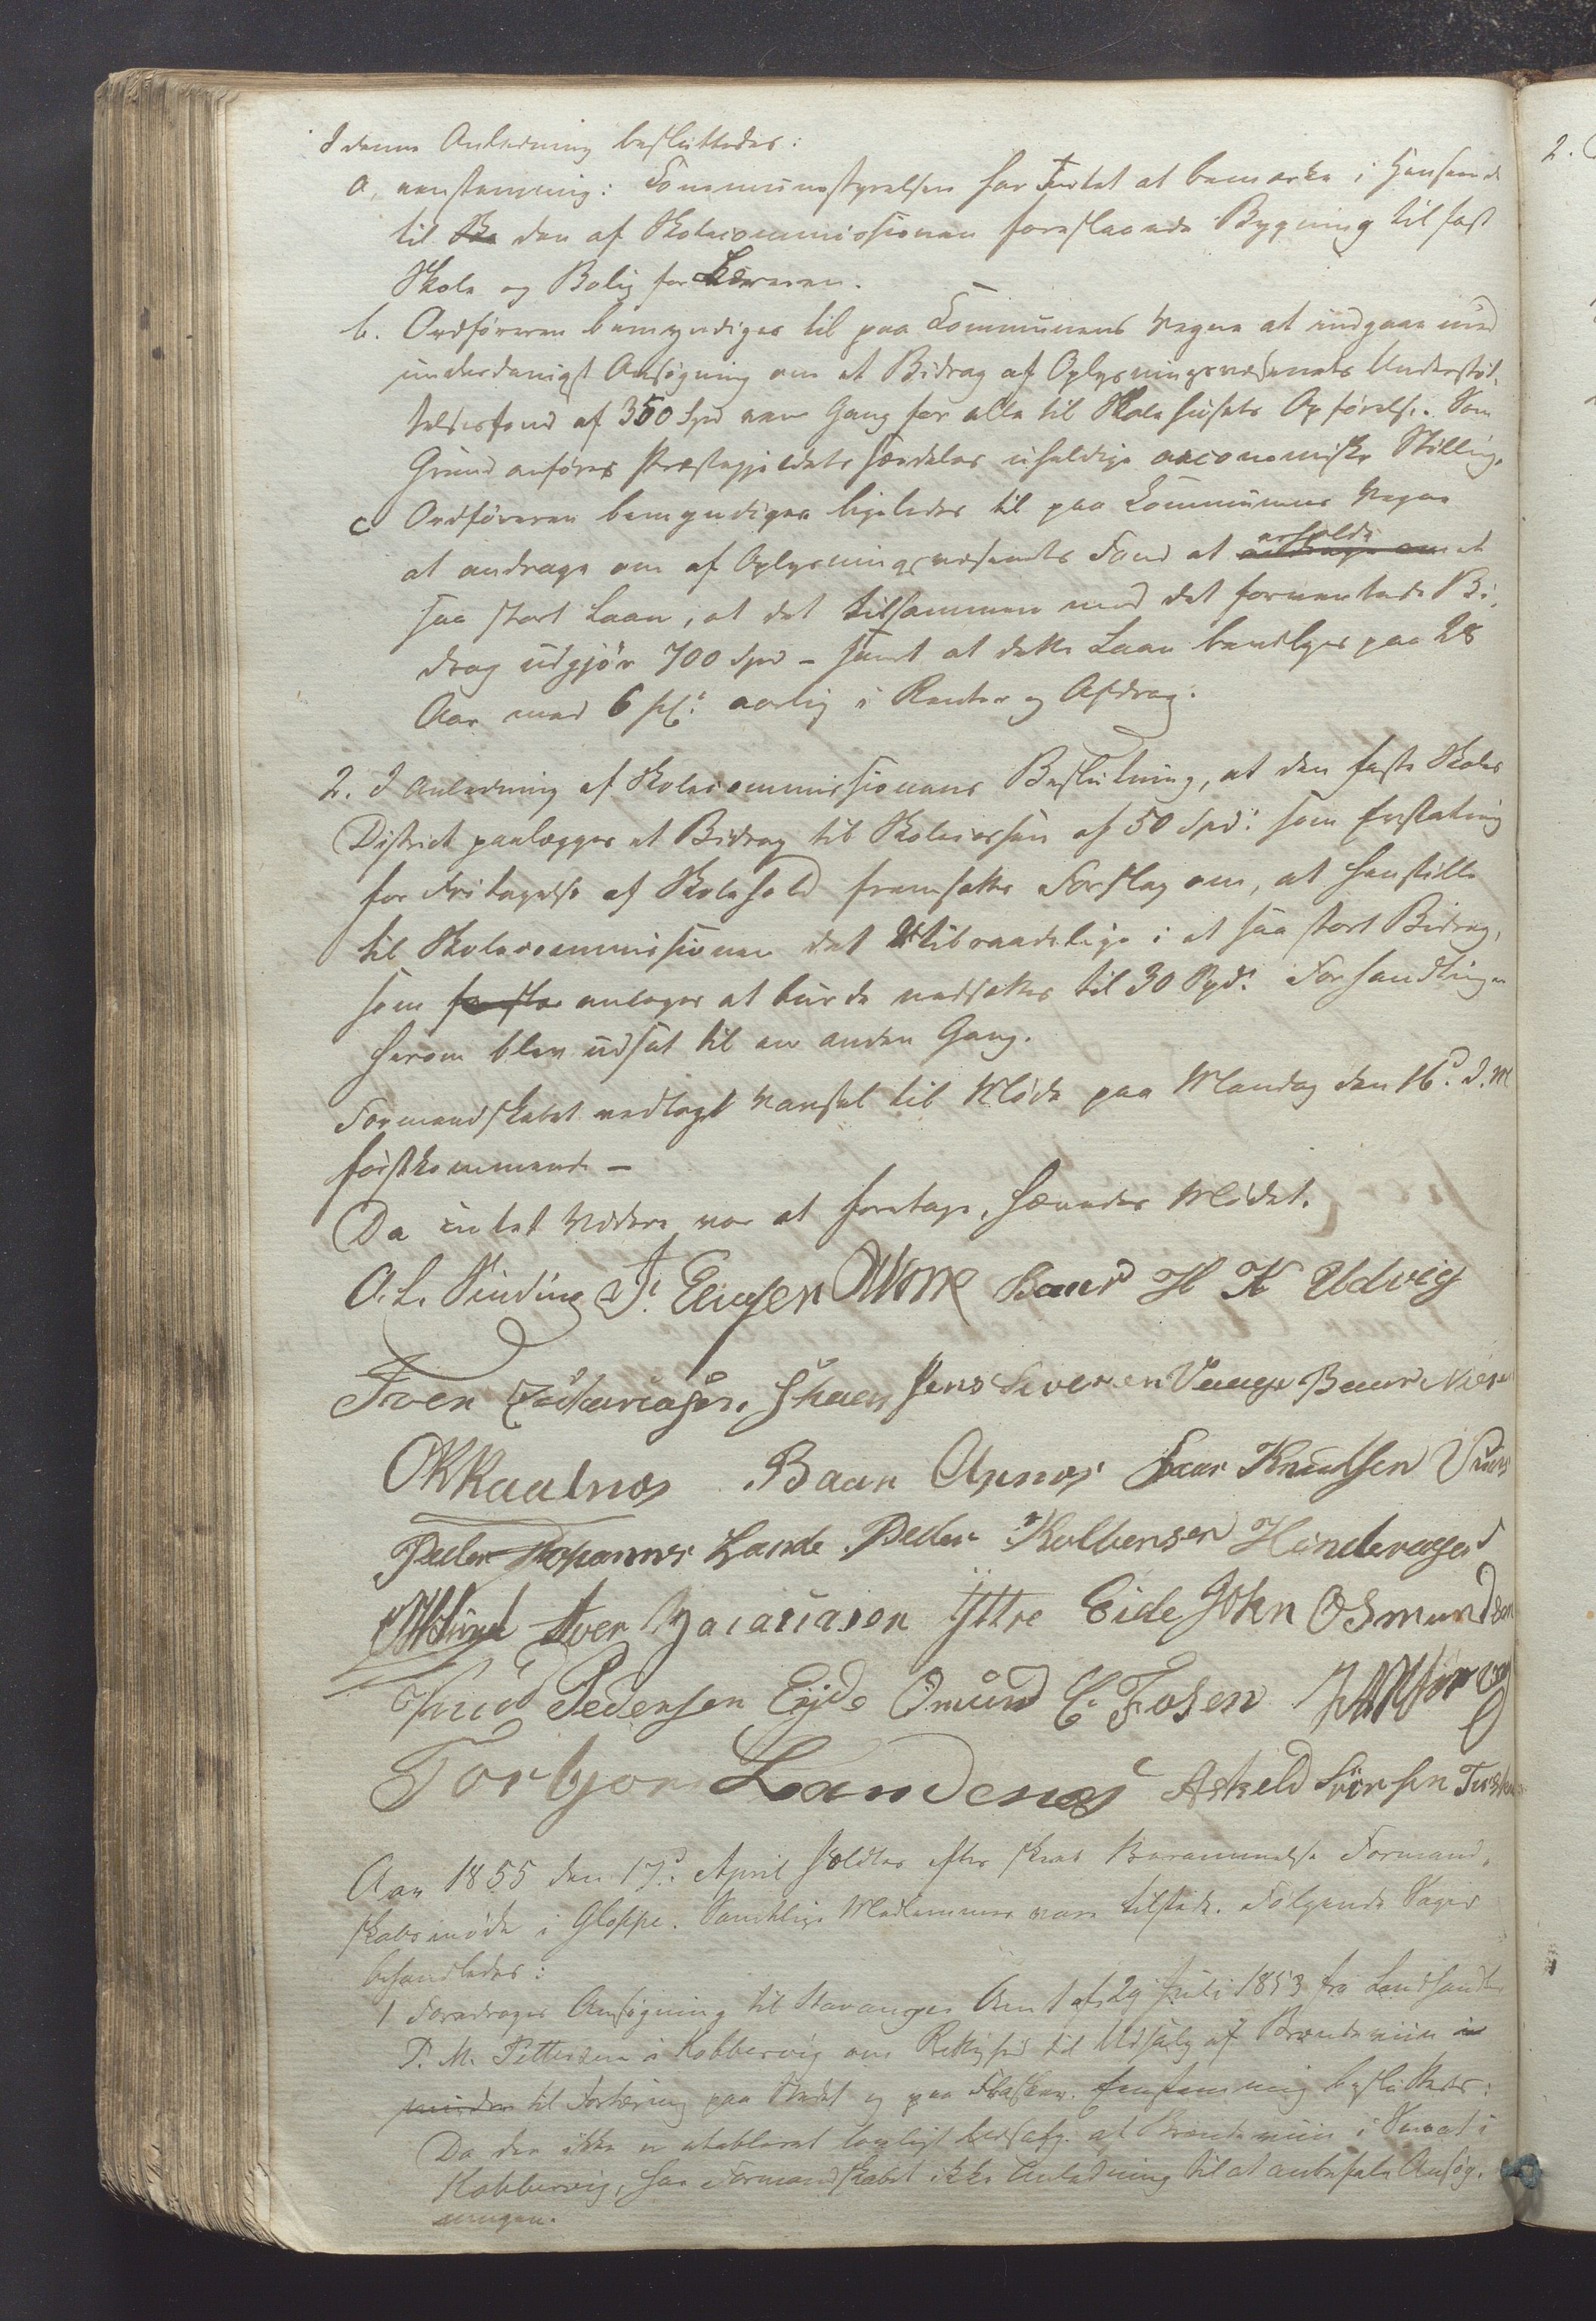 I denne Anledning besluttedes:
a, eenstemmig: Communestyrelsen har Intet at bemærke i Henseende
til Sko den af Skolecommissionen foreslaaede Bygning til fast
Skole og Bolig for Læreren.
b. Ordføreren bemyndiges til paa Communens Vegne at indgaae med
underdanigst Ansøgning om et Bidrag af Oplysningsvæsenets Understøt-
telsesfond af 350 Spd een Gang for alle til Skolehusets Opførelse. Som
Grund anføres Præstegjeldets særdeles uheldige oeconomiske Stilling.
c Ordføreren bemyndiges ligeledes til paa Communens Vegne
at andrage om af Oplysningsvæsenets Fond at erholde et
saa stort Laan, at det tilsammen med det forventede Bi-
drag udgjør 700 Spd - samt at dette Laan bevilges paa 28
Aar med 6 pC: aarlig i Renter og Afdrag.
2. I Anledning af Skolecommissionens Beslutning, at den faste Skoles
District paalægges et Bidrag til Skolecassen af 50 Spd: som Erstatning
for Fritagelse af Skolehold fremsattes Forslag om, at henstille
til Skolecommissionen det Utilraadelige i et saa stort Bidrag,
som antages at burde nedsættes til 30 Spd: Forhandlingen
herom blev udsat til en anden Gang.
Formandskabet vedtog Varsel til Møde paa Mandag den 16d. d. M
førstkommende -
Da intet videre var at foretage, hævedes Mødet.
A. L. Sinding T. Elinsen Baard H K Udvig
Iver Zakariasen Jens Iversen Vaage Baar
O K Kaalnæs Baar Apnæs Knudsen
Peder Johannes Lande Peder Kolbensen Hinderager
Iver Zacariasen Yttre Eide John Osmundsen
Knud Pedersen Eyde Omund E. Fosen
Torbjør Landenæs Askeld
Aar 1855 den 17d. April holdtes efter skeet Berammelse Formand-
skabsmøde i Gloppe. Samtlige Medlemmer vare tilstede. Følgende Sager
behandledes:
1 Foredroges Ansøgning til Stavanger Amt af 29 Juli 1853 fra Landhandler
P. M. Pettersen i Kobbervig om Rettighed til Udsalg af Brændeviin i
mindre til Fortæring paa Stedet og paa Flasker. Eenstemmig besluttedes:
Da der ikke er etableret lovligt Udsalg af Brændeviin i Smaat i
Kobbervig, har Formandskabet ikke Anledning til at anbefale Ansøg-
ningen.
2.